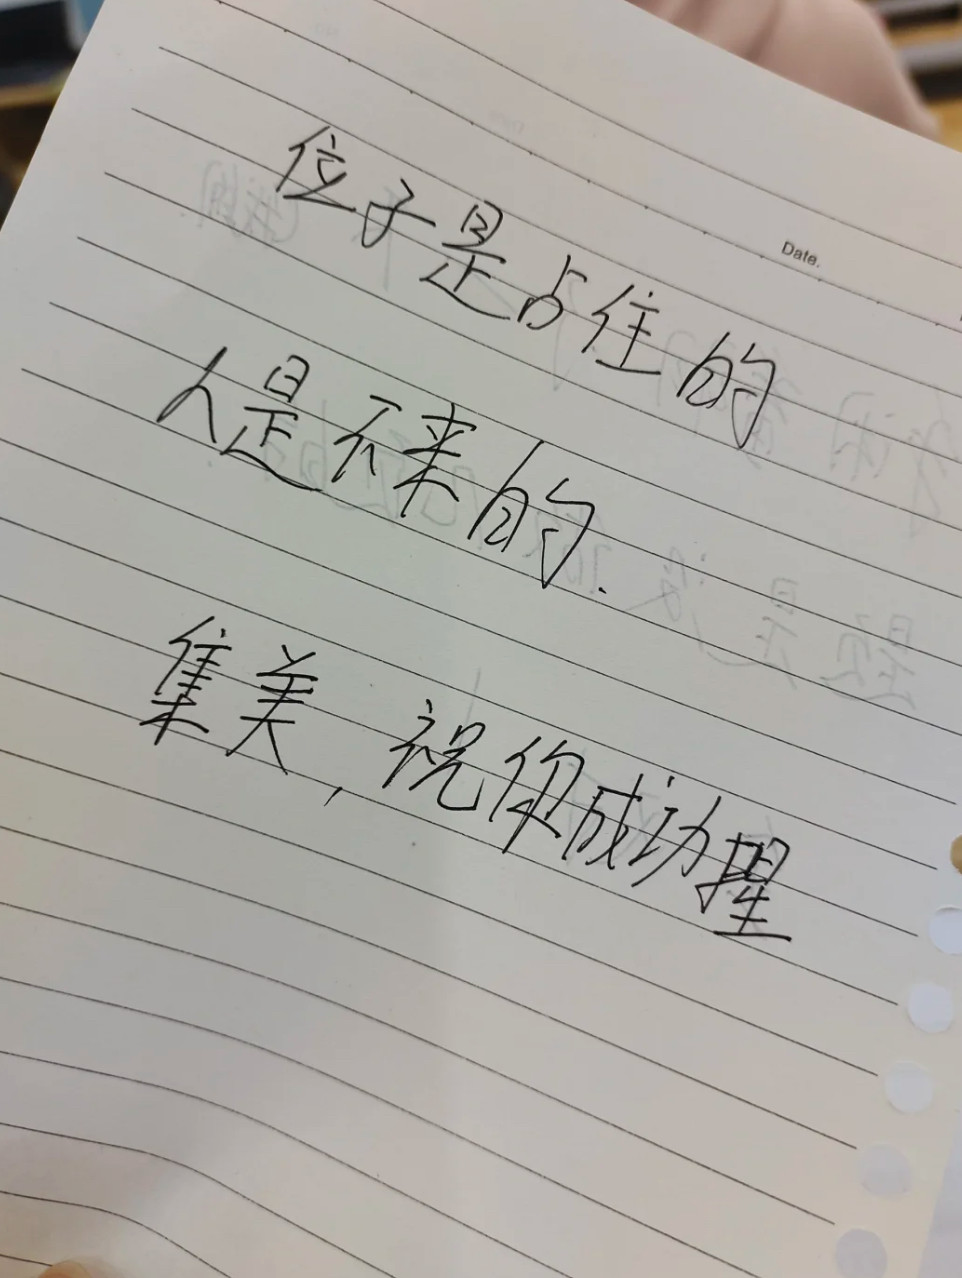 Date.
位子是占住的
人是不来的.
集美,祝你成功